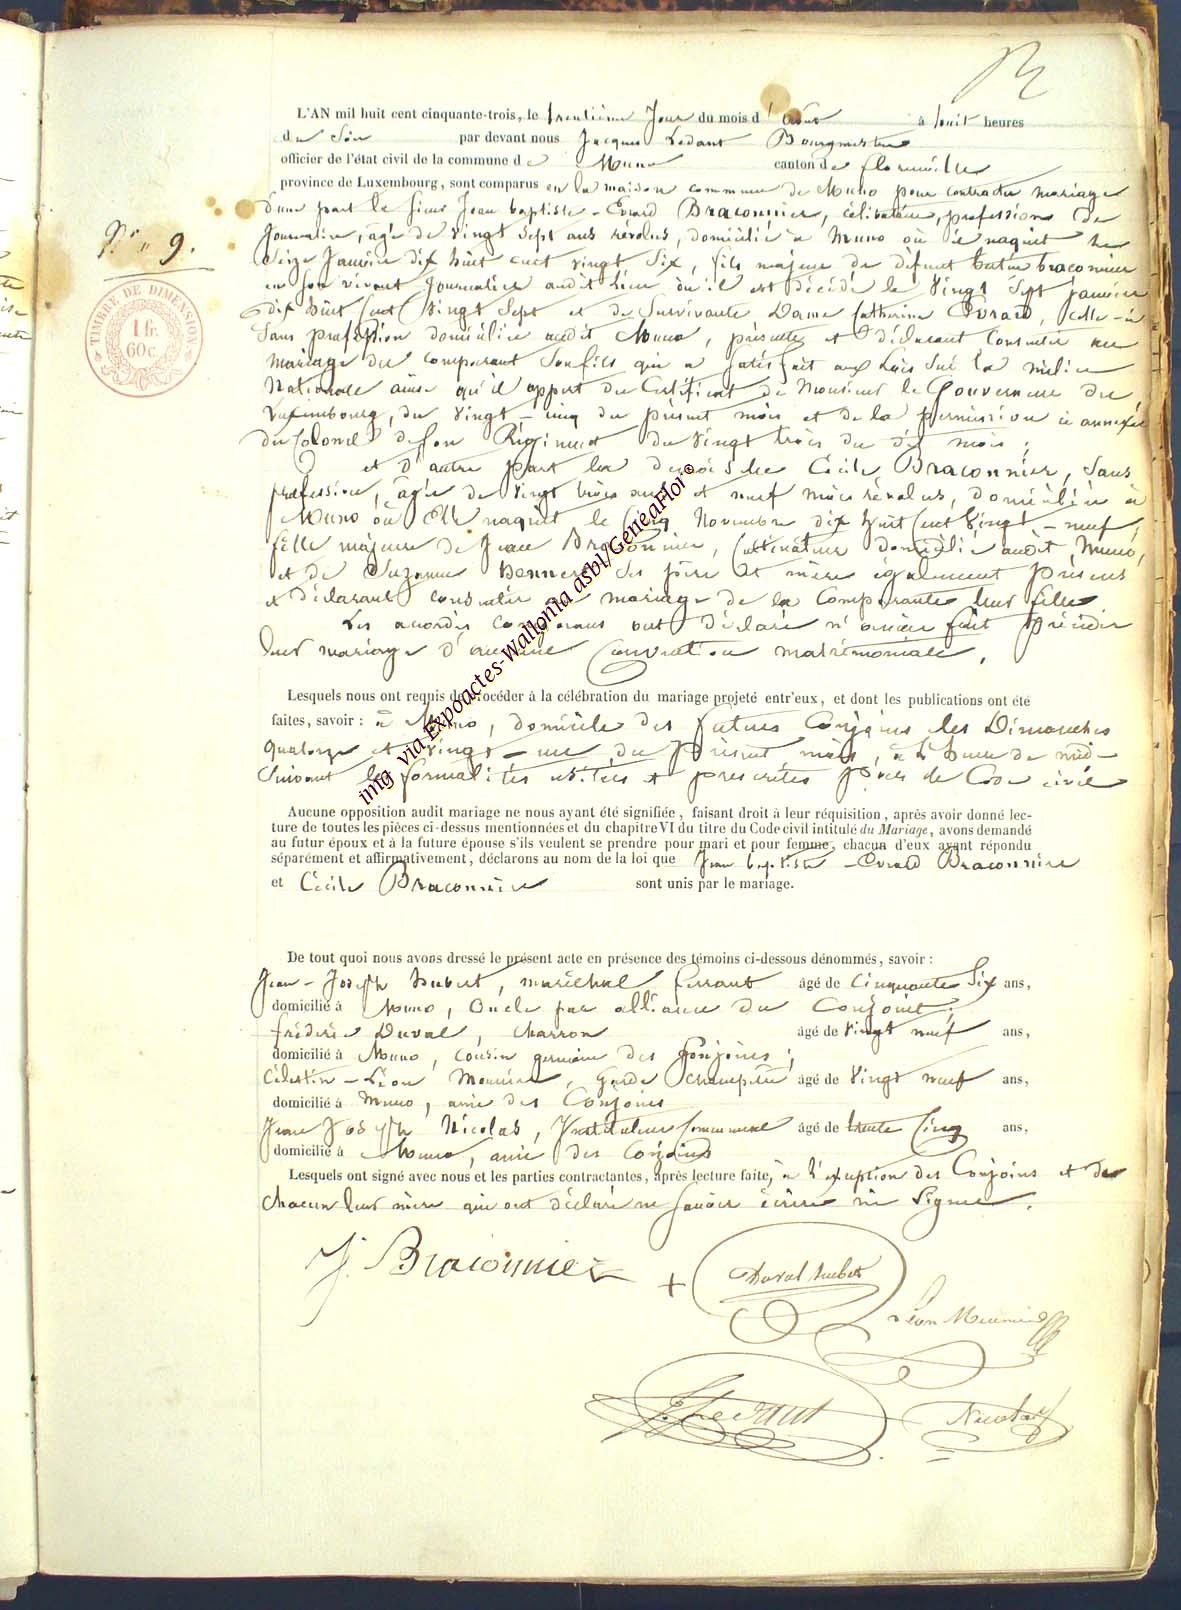 L'AN mil huit cent cinquante-trois, le trentième Jour du mois d'août à huit heures
du Soir par devant nous Jacques Ledant Bourgmestre
officier de l'état civil de la commune de Muno canton de florenville
province de Luxembourg, sont comparus en la maison commune de Muno pour contracter mariage
d'une part le Sieur Jean baptiste - Evrard Braconnier, célibataire, profession de
Journalier, âgé de vingt sept ans révolus, domicilié à Muno où il naquit le
N° 9.
Seize Janvier dix huit cent vingt Six, fils majeur de défunt braconnier
en son vivant Journalier audit lieu où il est décédé le vingt Sept janvier
TIMBRE DE DIMENSION
1 fr.
60 c.
dix huit Cent Vingt Sept et de Survivante Dame Catherine Evrard, celle-ci
Sans profession domiciliée audit Muno, présente et déclarant Consentir au
mariage du comparant Son fils qui a Satisfait aux Lois Sur la milice
Nationale ainsi qu'il appert du Certificat de Monsieur le Gouverneur du
Luxembourg, du vingt-cinq du présent mois et de la permission ci annexée
du Colonel de son Régiment du vingt trois du dit mois;
et d'autre part la demoiselle Cécile Braconnier, Sans
profession, âgée de vingt trois ans et neuf mois révolus, domiciliée à
Muno où Elle naquit le Cinq Novembre dix huit Cent Vingt-neuf,
fille majeure de Jean Braconnier, Cultivateur domicilié audit Muno,
et de Suzanne Ses père et mère également présens
et déclarant consentir au mariage de la Comparante leur fille.
Les ont déclaré n'avoir fait précéder
leur mariage d'aucune Convention matrimoniale.
img via Expoactes-Wallonia asbl/GeneaFloi°
Lesquels nous ont requis de procéder à la célébration du mariage projeté entr'eux, et dont les publications ont été
faites, savoir : à Muno, domicile des futurs Conjoins les Dimanches
quatorze et vingt-un du présent mois, à l'heure de midi
Suivant les formalités usitées et prescrites par le Code civil
Aucune opposition audit mariage ne nous ayant été signifiée, faisant droit à leur réquisition, après avoir donné lec-
ture de toutes les pièces ci-dessus mentionnées et du chapitre VI du titre du Code civil intitulé du Mariage, avons demandé
au futur époux et à la future épouse s'ils veulent se prendre pour mari et pour femme, chacun d'eux ayant répondu
séparément et affirmativement, déclarons au nom de la loi que Jean baptiste - Evrard Braconnier
et Cécile Braconnier sont unis par le mariage.
De tout quoi nous avons dressé le présent acte en présence des témoins ci-dessous dénommés, savoir :
Jean-Joseph hubert, maréchal ferrant âgé de Cinquante Six ans,
domicilié à Muno, Oncle par alliance du Conjoint.
frédéric Duval, charron âgé de Vingt neuf ans,
domicilié à Muno, cousin germain des Conjoins;
Célestin-Léon Meunier, garde champêtre âgé de Vingt neuf ans,
domicilié à Muno, ami des Conjoins
Jean Joseph Nicolas, Instituteur Communal âgé de trente Cinq ans,
domicilié à Muno, ami des Conjoins
Lesquels ont signé avec nous et les parties contractantes, après lecture faite, à l'exception des Conjoins et de
chacun leur mère qui ont déclaré ne Savoir écrire ni Signer.
J. Braconnier + Duval hubert
Léon Meunier
Ledant Nicolas